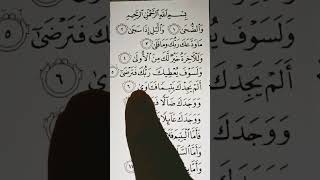 بِسْمِ ٱللَّهِ ٱلرَّحْمَٰنِ ٱلرَّحِيمِ
وَٱلضُّحَىٰ ١ وَٱلَّيْلِ إِذَا سَجَىٰ ٢
مَا وَدَّعَكَ رَبُّكَ وَمَا قَلَىٰ ٣
وَلَلْآخِرَةُ خَيْرٌ لَّكَ مِنَ ٱلْأُولَىٰ ٤
وَلَسَوْفَ يُعْطِيكَ رَبُّكَ فَتَرْضَىٰ ٥
أَلَمْ يَجِدْكَ يَتِيمًا فَـَٔاوَىٰ ٦
وَوَجَدَكَ ضَآلًّا
وَوَجَدَكَ عَآئِلًا
فَأَمَّا ٱلْيَتِيمَ
وَأَمَّا
وَأَمَّا